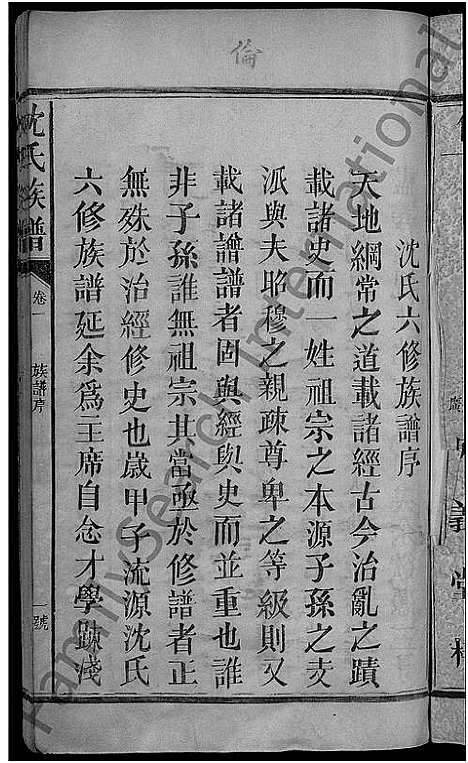 倫
沈氏六修族譜序
天地綱常之道載諸經古今治亂之蹟
載諸史而一姓祖宗之本源子孫之支
派與夫昭穆之親疎尊卑之等級則又
載諸譜譜者固與經與史而並重也誰
非子孫誰無祖宗其當亟於修譜者正
無殊於治經修史也歲甲子流源沈氏
六修族譜延余爲王席自念才學踈淺
沈氏族譜
卷一
族譜序
一號
FamilySearch International